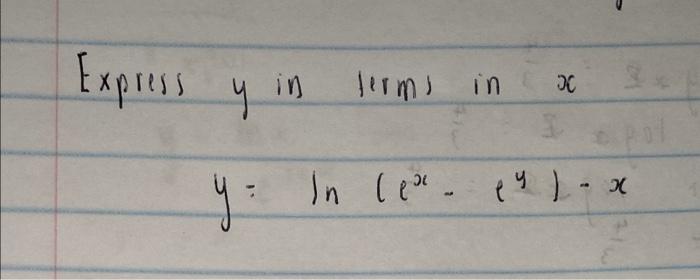 Express y in terms in x
y = ln (eˣ - eʸ) - x